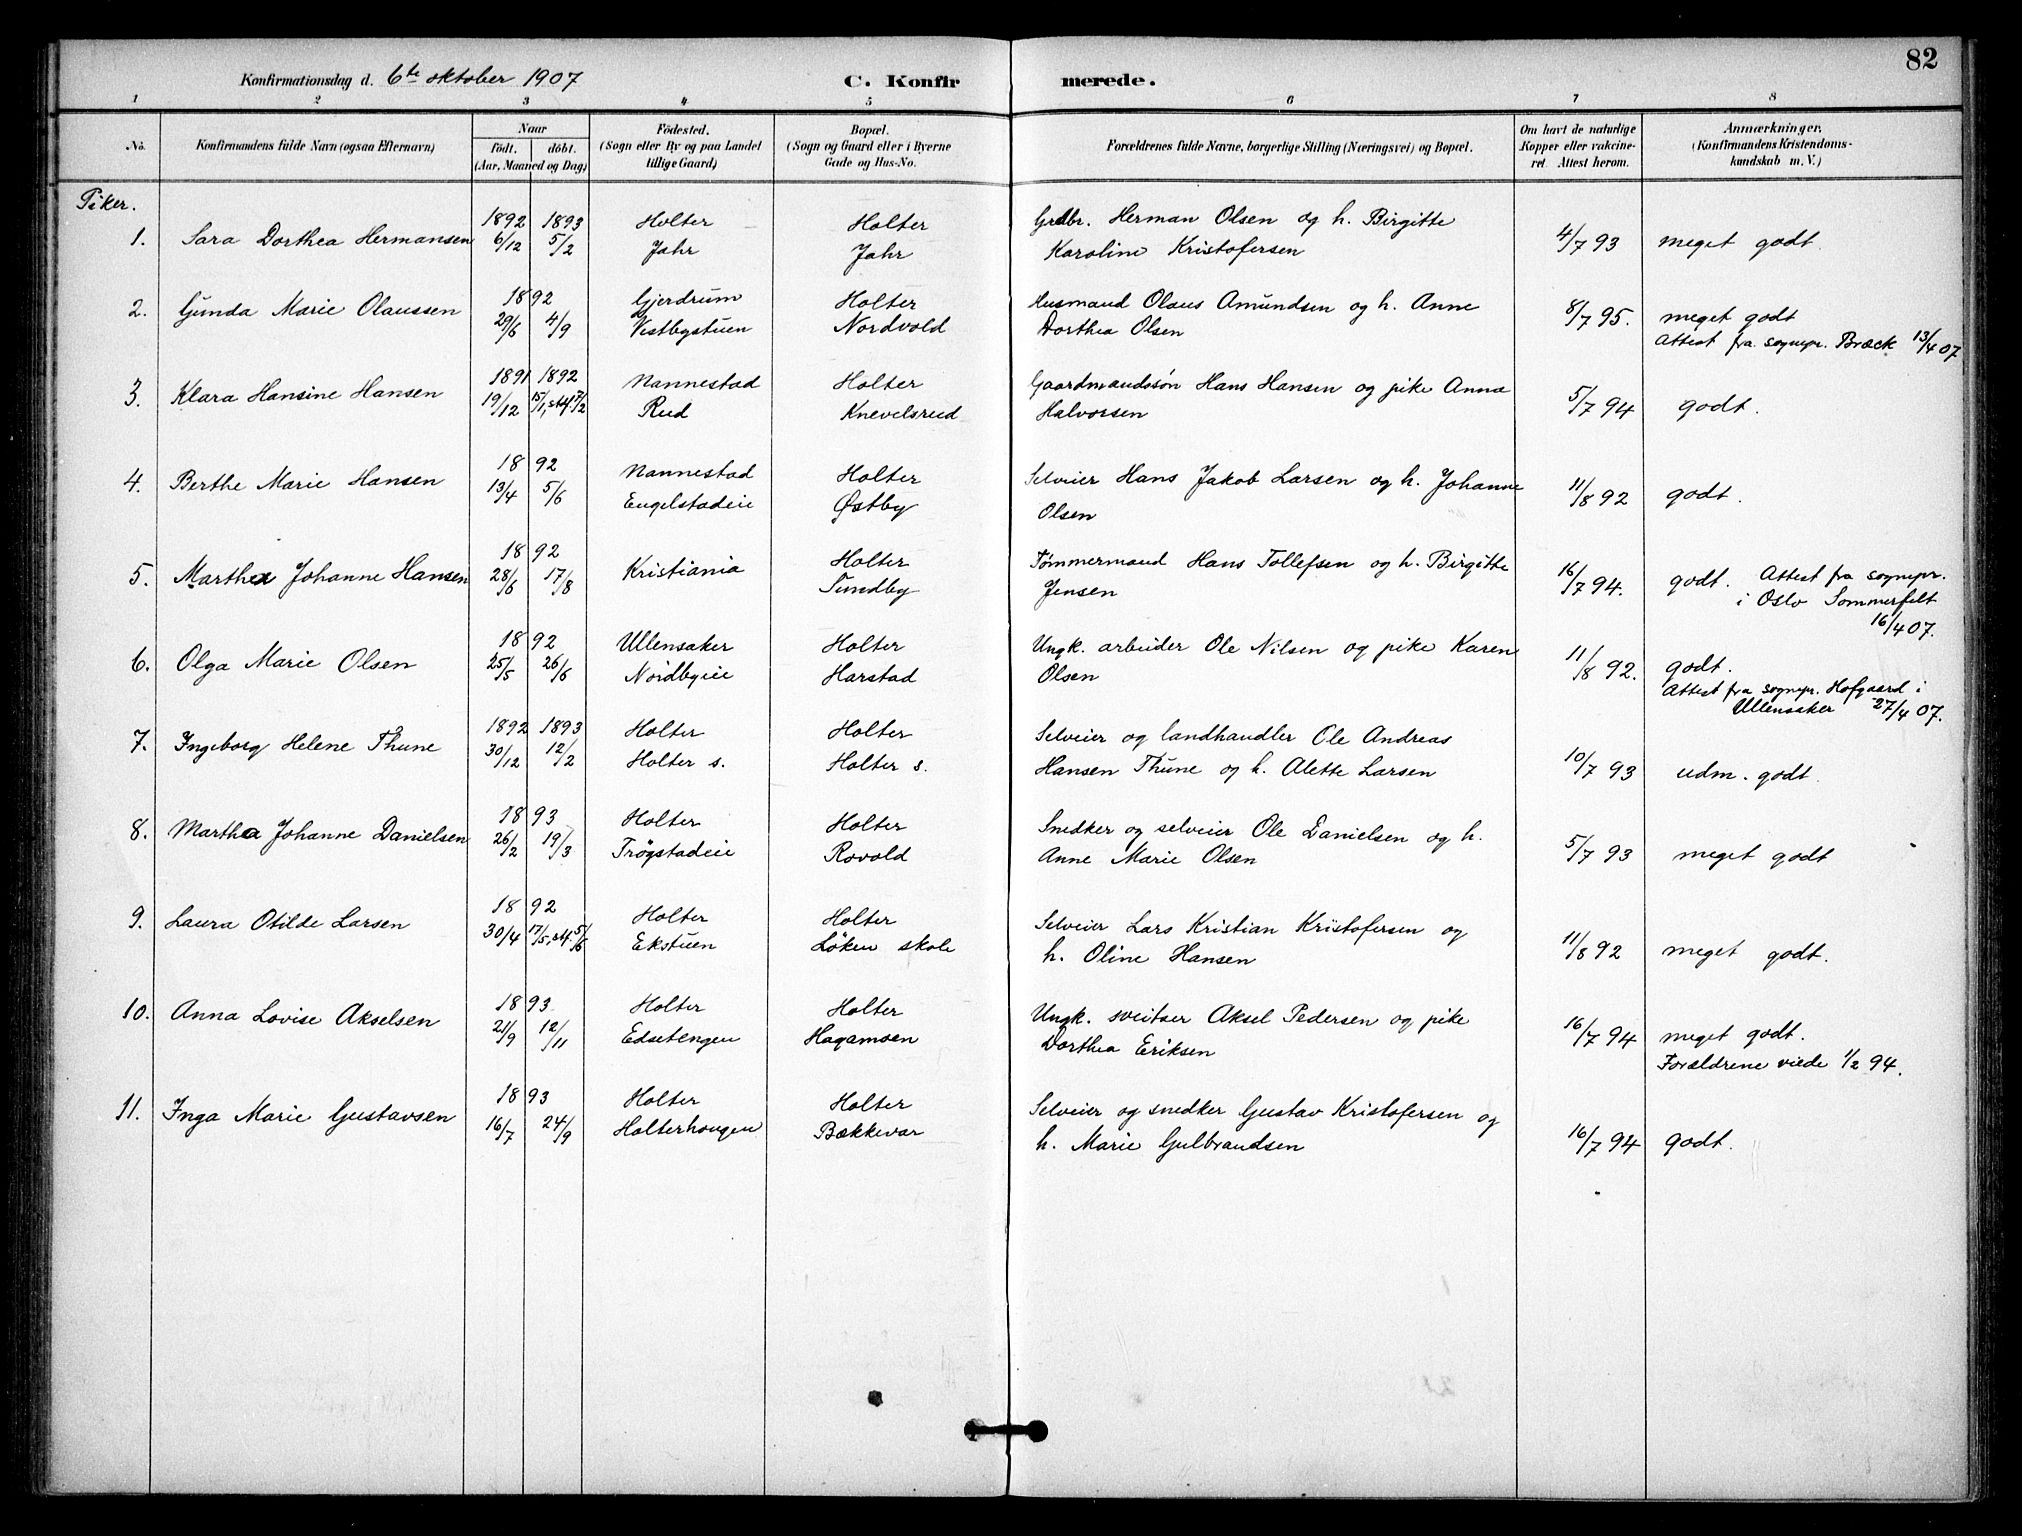 82
Konfirmationsdag d. 6te oktober 1907 C. Konfirmerede.
1 2 3 4 5 6 7 8
No. Konfirmandens fulde Navn (ogsaa Efternavn) Naar födt. döbt. (Aar, Maaned og Dag) Födested. (Sogn eller By og paa Landet tillige Gaard) Bopæl. (Sogn og Gaard eller i Byerne Gade og Hus-No. Forældrenes fulde Navne, borgerlige Stilling (Næringsvei) og Bopæl. Om havt de naturlige Kopper eller vakcineret. Attest herom. Anmærkninger. (Konfirmandens Kristendomskundskab m. V.)
Piker.
1892 1893 Holter Holter Grdbr. Herman Olsen og h. Birgitte
1. Sara Dorthea Hermansen 6/12 5/2 Jahr Jahr Karoline Kristofersen 4/7 93 meget godt.
1892 Gjerdrum Holter Husmand Olaus Amundsen og h. Anne
2. Gunda Marie Olaussen 29/6 4/9 Vestbystuen Nordvold Dorthea Olsen 8/7 95. meget godt
Attest fra sognepr. Bræck 13/4 07
1891 1892 Nannestad Holter Gaardmandssön Hans Hansen og pike Anna
3. Klara Hansine Hansen 19/12 15/1, stf. 7/2 Rud Knevelsrud Halvorsen 5/7 94 godt.
1892 Nannestad Holter Selveier Hans Jakob Larsen og h. Johanne
4. Berthe Marie Hansen 13/4 5/6 Engelstadeie Østby Olsen 11/8 92 godt.
1892 Holter Tømmermand Hans Tollefsen og h. Birgitte
5. Marthea Johanne Hansen 28/6 17/8 Kristiania Sundby Jensen 16/7 94. godt. Attest fra sognepr.
i Oslo Sommerfelt
16/4 07.
1892 Ullensaker Holter Ungk. arbeider Ole Nilsen og pike Karen
6. Olga Marie Olsen 25/5 26/6 Nordbyeie Harstad Olsen 11/8 92. godt.
Attest fra sognepr. Hofgaard i
Ullensaker 27/4 07.
1892 1893 Holter Holter Selveier og landhandler Ole Andreas
7. Ingeborg Helene Thune 30/12 12/2 Holter s. Holter s. Hansen Thune og h. Alette Larsen 10/7 93 udm. godt.
1893 Holter Holter Snedker og selveier Ole Danielsen og h.
8. Martha Johanne Danielsen 26/2 19/3 Trøgstadeie Rovold Anne Marie Olsen 5/7 93 meget godt
1892 Holter Holter Selveier Lars Kristian Kristofersen og
9. Laura Otilde Larsen 30/4 17/5, stf. 5/6 Ekstuen Løken skole h. Oline Hansen 11/8 92 meget godt.
1893 Holter Holter Ungk. sveitser Aksel Pedersen og pike
10. Anna Lovise Akselsen 21/9 12/11 Edsetengen Hagamoen Dorthea Eriksen 16/7 94 meget godt.
Forældrene viede 1/2 94.
1893 Holter Holter Selveier og snedker Gustav Kristofersen og
11. Inga Marie Gustavsen 16/7 24/9 Holterhougen Bækkevar h. Marie Gulbrandsen 16/7 94 godt.